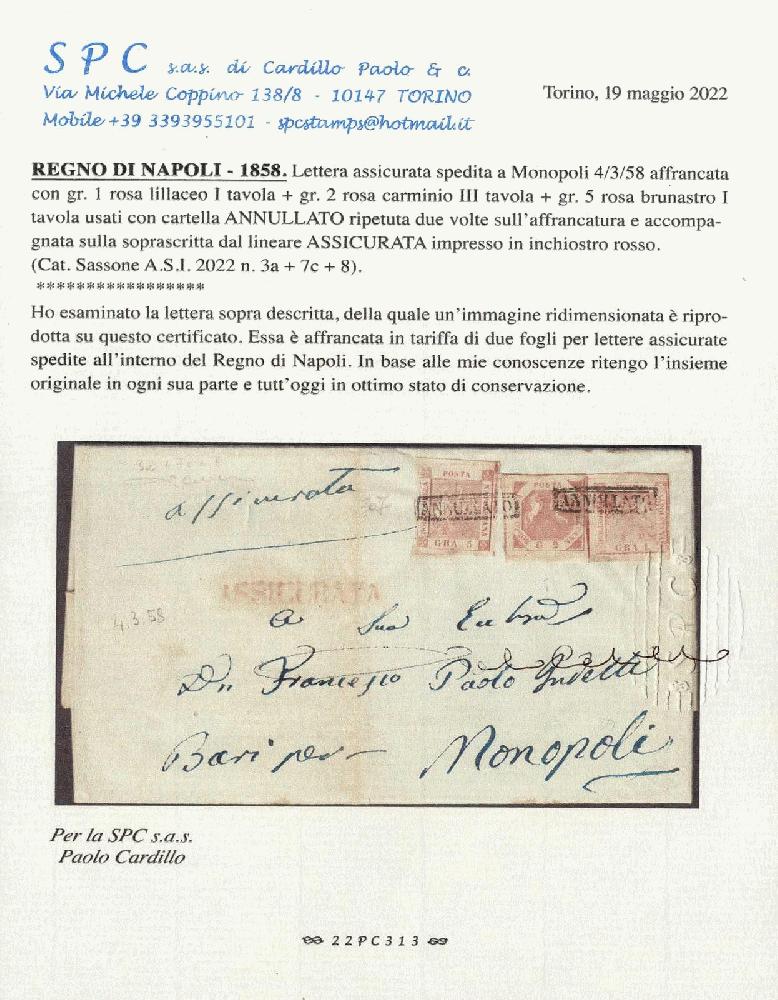 SPC s.a.s. di Cardillo Paolo & c.
Via Michele Coppino 138/8 - 10147 TORINO
Mobile +39 3393955101 - spcstamps@hotmail.it
Torino, 19 maggio 2022
REGNO DI NAPOLI - 1858. Lettera assicurata spedita a Monopoli 4/3/58 affrancata
con gr. 1 rosa lillaceo I tavola + gr. 2 rosa carminio III tavola + gr. 5 rosa brunastro I
tavola usati con cartella ANNULLATO ripetuta due volte sull'affrancatura e accompa-
gnata sulla soprascritta dal lineare ASSICURATA impresso in inchiostro rosso.
(Cat. Sassone A.S.I. 2022 n. 3a + 7c + 8).
*****************
Ho esaminato la lettera sopra descritta, della quale un'immagine ridimensionata è ripro-
dotta su questo certificato. Essa è affrancata in tariffa di due fogli per lettere assicurate
spedite all'interno del Regno di Napoli. In base alle mie conoscenze ritengo l'insieme
originale in ogni sua parte e tutt'oggi in ottimo stato di conservazione.
assicurata
POSTA
POSTA
ANNULLATO
ANNULLATO
GRA 5
G 2
GRA
ASSICURATA
4.3.58
A Sua
Dn Francesco Paolo
Bari per Monopoli
SPC
Per la SPC s.a.s.
Paolo Cardillo
22PC313